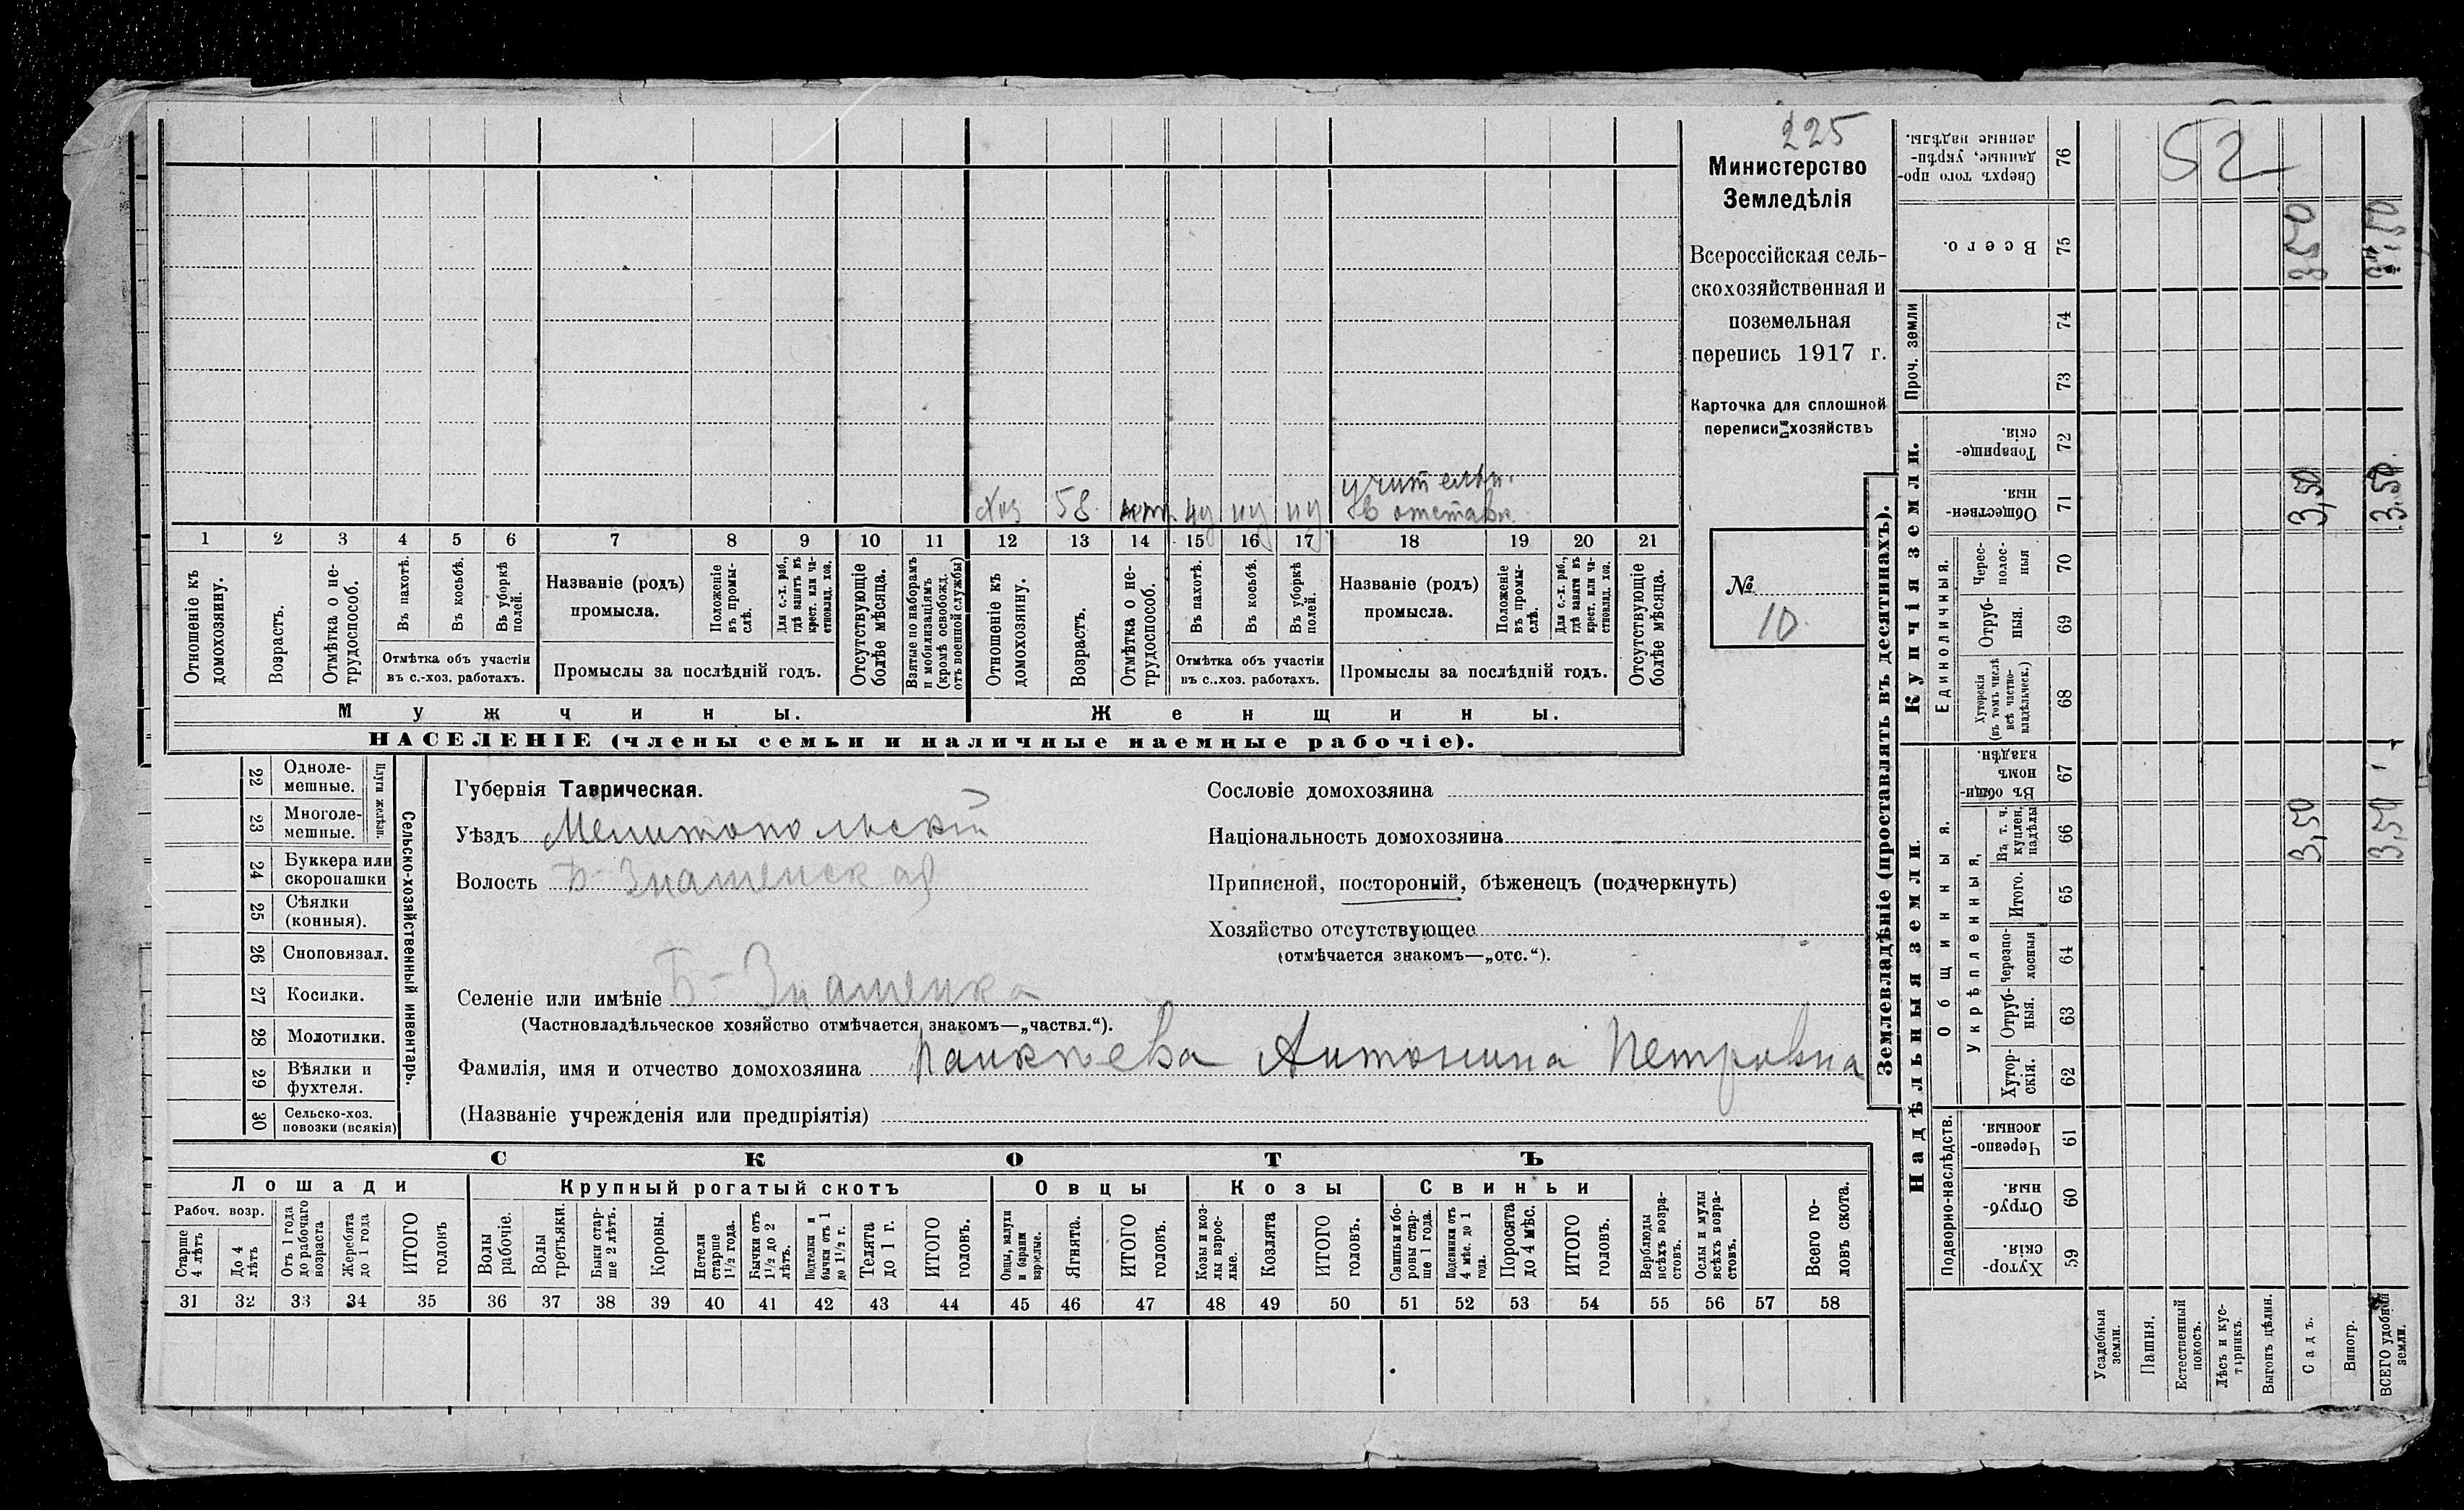 225
Министерство
Земледѣлія
Всероссійская сель-
скохозяйственная и
поземельная
перепись 1917 г.
Карточка для сплошной
переписи хозяйствъ
№
10
хоз 58 нет ну ну ну учительн.
в отставк
1 2 3 4 5 6 7 8 9 10 11 12 13 14 15 16 17 18 19 20 21
Отношеніе къ домохозяину.
Возрастъ.
Отмѣтка о не-трудоспособ.
Въ пахотѣ.
Въ косьбѣ.
Въ уборкѣ полей.
Отмѣтка объ участіи
въ с.-хоз. работахъ.
Названіе (родъ)
промысла.
Положеніе въ промы-слѣ.
Для с.-х. раб., гдѣ занятъ въ крест. или ча-стновлад. хоз.
Промыслы за послѣдній годъ.
Отсутствующіе болѣе мѣсяца.
Взятые по наборамъ и мобилизаціямъ (кромѣ освобожд. отъ военной службы)
Отношеніе къ домохозяину.
Возрастъ.
Отмѣтка о не-трудоспособ.
Въ пахотѣ.
Въ косьбѣ.
Въ уборкѣ полей.
Отмѣтка объ участіи
въ с..хоз. работахъ.
Названіе (родъ)
промысла.
Положеніе въ промы-слѣ.
Для с.-х. раб., гдѣ занята въ крест. или ча-стновлад. хоз.
Промыслы за послѣдній годъ.
Отсутствующіе болѣе мѣсяца.
Мужчины.
Женщины.
НАСЕЛЕНІЕ (члены семьи и наличные наемные рабочіе).
22 Одноле-мешные.
23 Многоле-мешные.
Плуги желѣзн.
24 Буккера или скоропашки
25 Сѣялки (конныя).
26 Сноповязал.
27 Косилки.
28 Молотилки.
29 Вѣялки и фухтеля.
30 Сельско-хоз. повозки (всякія)
Сельско-хозяйственный инвентарь.
Губернія Таврическая.
Уѣздъ Мелитопольскій
Волость Б-Знаменская
Селеніе или имѣніе Б-Знаменка
(Частновладѣльческое хозяйство отмѣчается знакомъ—„частвл.“).
Фамилія, имя и отчество домохозяина Антонина Петровна
(Названіе учрежденія или предпріятія)
Сословіе домохозяина
Національность домохозяина
Приписной, посторонній, бѣженецъ (подчеркнуть)
Хозяйство отсутствующее
(отмѣчается знакомъ—„отс.“).
СКОТЪ
Лошади
Крупный рогатый скотъ
Овцы
Козы
Свиньи
Рабоч. возр.
Старше 4 лѣтъ
До 4 лѣтъ
Отъ 1 года до рабочаго возраста
Жеребята до 1 года
ИТОГО головъ
Волы рабочіе.
Волы третьяки.
Быки стар-ше 2 лѣтъ.
Коровы.
Нетели старше 1½ года.
Бычки отъ 1½ до 2 лѣтъ.
Подтелки и бычки отъ 1 до 1½ г.
Телята до 1 г.
ИТОГО головъ.
Овцы, валухи и бараны взрослые.
Ягнята.
ИТОГО головъ.
Козы и коз-лы взрос-лые.
Козлята
ИТОГО головъ.
Свиньи и бо-ровы стар-ше 1 года.
Подсвинки отъ 4 мѣс. до 1 года.
Поросята до 4 мѣс.
ИТОГО головъ.
Верблюды всѣхъ возра-стовъ.
Ослы и мулы всѣхъ возра-стовъ.
Всего го-ловъ скота.
31 32 33 34 35 36 37 38 39 40 41 42 43 44 45 46 47 48 49 50 51 52 53 54 55 56 57 58
Землевладѣніе (проставлять въ десятинахъ).
Надѣльныя земли.
Купчія земли.
Проч. земли
Подворно-наслѣдств.
Общинныя.
Укрѣпленныя,
Единоличныя.
Хутор-скія. 59
Отруб-ныя. 60
Черезпо-лосныя. 61
Хутор-скія. 62
Отруб-ныя. 63
Черезпо-лосныя 64
Итого. 65
Въ т. ч. куплен. надѣлы 66
Въ общи-номъ владѣн. 67
Хуторскія (въ томъ числѣ всѣ частно-владѣльческ.) 68
Отруб-ныя. 69
Черес-полос-ныя 70
Обществен-ныя. 71
Товарище-скія. 72
73
74
Всего. 75
Сверхъ того про-данные, укрѣп-ленные надѣлы. 76
Усадебныя земли.
Пашня.
Естественный покосъ.
Лѣсъ и кус-тарникъ.
Выгонъ цѣлин.
Садъ.
Виногр.
ВСЕГО удобной земли.
3,50 3,50 3,50
3,50 3,50
52